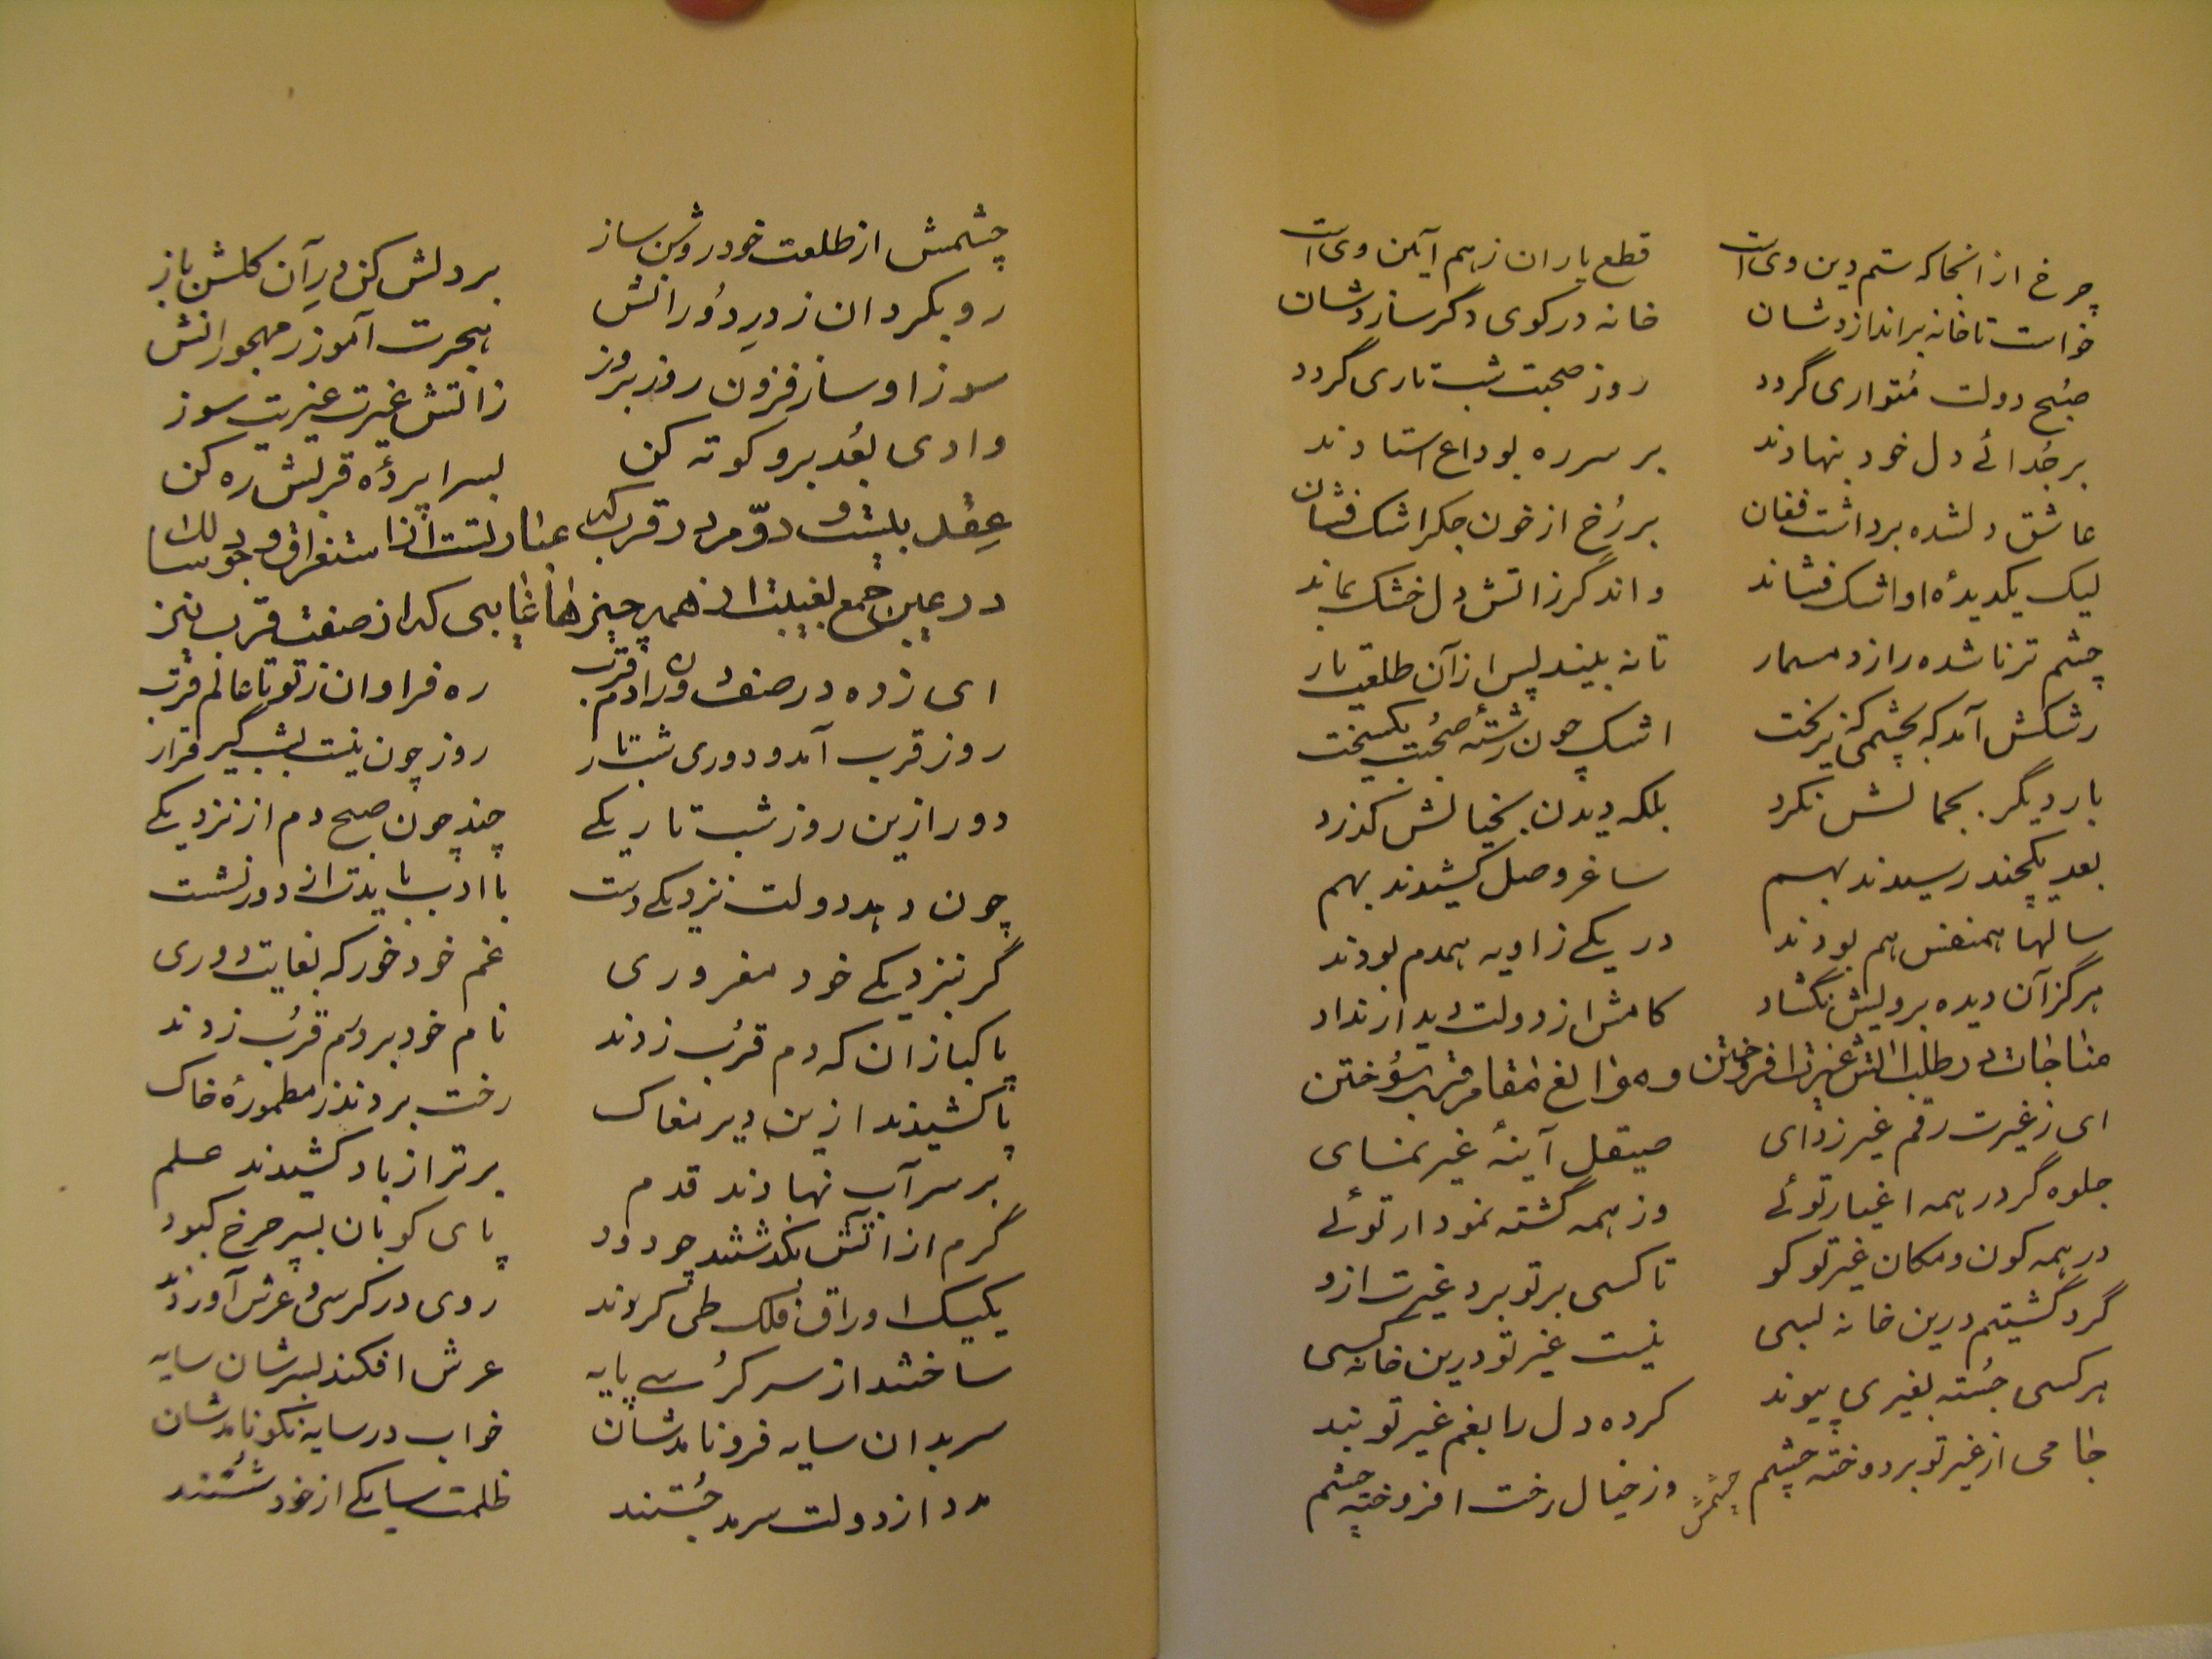 چرخ از انجا که ستم دین وی است قطع یاران ز هم آیین وی است
خواست تا خانه براندازدشان خانه در کوی دگر سازدشان
صُبح دولت مُتواری گردد روز صحبت شب تاری گردد
بر جُدائے دل خود بنهادند بر سر ره بوداع استادند
عاشق دلشده برداشت فغان بر رُخ از خون جگر اشک فشان
لیک یکدیدهٔ او اشک فشاند واند گر زاتش دل خشک بماند
چشم تر ناشده را زد مسمار تا نه بیند پس ازآن طلعت یار
رشکش آمد که بچشمی کز ریخت اشک چون رشتهٔ صُحبت بگسیخت
بار دیگر بجمالش نگرد بلکه دیدن بخیالش گذرد
بعد یکچند رسیدند بهم ساغر وصل کشیدند بهم
سالها همنفس هم بودند در یکے زاویه همدم بودند
هرگز آن دیده برویش نگشاد کامش از دولت دیدار نداد
مناجات در طلب اتش غیرت افروختن و موانع مقام قرب سُوختن
ای ز غیرت رقم غیر زدای صیقل آینهٔ غیر نمای
جلوه گر در همه اغیار توئے وز همه گشته نمودار توئے
در همه کون و مکان غیر تو کو تا کسی بر تو برد غیرت ازو
گرد گشتیم درین خانه بسی نیست غیر تو درین خانه کسی
هر کسی جُسته بغیری پیوند کرده دل را بغم غیر تو بند
جامی از غیر تو بر دوخته چشم وز خیال رخت افروخته چشم
چشمش
چشمش از طلعت خود روشن ساز بر دلش کن در آن گلشن باز
رو بگردان ز درِ دُورانش هجرت آموز ز مهجورانش
سوز او ساز فزون روز بروز زاتش غیرت غیریت سوز
وادی بُعد برو کوته کن بسرا پردهٔ قربش ره کن
عقد بیست و دوّم در قرب که عبارتست از استغراق وجود سالک
در عین جمع بغیبت از همه چیزها تا بحدی که از صفت قرب نیز
ای زده در صف دوران دم قرب ره فراوان ز تو تا عالم قرب
روز قرب آمد و دوری شب تار روز چون نیست بشب گیر قرار
دور ازین روز شب تاریکے چند چون صبح دم از نزدیکے
چون دهد دولت نزدیکے دست با ادب بایدت از دور نشست
گر بنزدیکے خود مغروری غم خود خور که بغایت دوری
پاکبازان که دم قرُب زدند نام خود بر دم قرُب زدند
پا کشیدند ازین دیر مغاک رخت بردند ز مطمورهٔ خاک
بر سر آب نهادند قدم برتر از باد کشیدند علم
گرم از اتش بگذشتند چو دود پای کوبان بسپر چرخ کبود
یکیک اوراق فلک طی کردند روی در کرسی و عرش آوردند
ساختند از سر کرُسے پایه عرش افکند بسرشان سایه
سر بدان سایه فرو نامدشان خواب در سایه نکو نامدشان
مدد از دولت سرمد جُستند ظلمت سایکے از خود شُستند